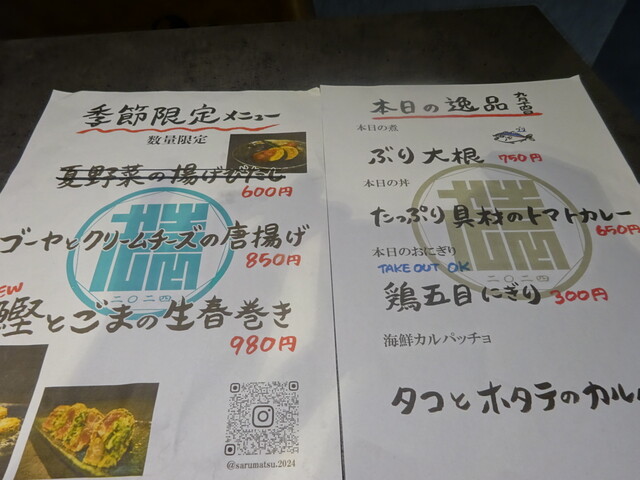 季節限定メニュー
数量限定
夏野菜の揚げびたし
600円
ゴーヤとクリームチーズの唐揚げ
850円
NEW
鰹とごまの生春巻き
980円
二〇二四
@sarumatsu.2024
本日の逸品
本日の煮
ぶり大根 750円
本日の丼
たっぷり具材のトマトカレー
650円
本日のおにぎり
TAKE OUT OK
鶏五目にぎり 300円
二〇二四
海鮮カルパッチョ
タコとホタテのカル